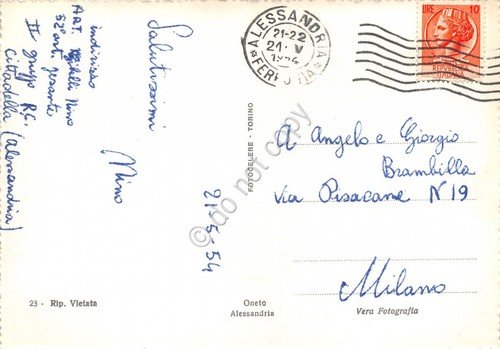 indirizzo
ART.
52° art. pesante
II gruppo R.C.
Cittadella (Alessandria)
Salutissimi
Nino
21-5-54
23 - Rip. Vietata
FOTOCELERE - TORINO
Oneto
Alessandria
ALESSANDRIA
21-22
21 V
FERROVIA
LIRE 10
A Angelo e Giorgio
Brambilla
via Pisacane N 19
Milano
Vera Fotografia
do not copy